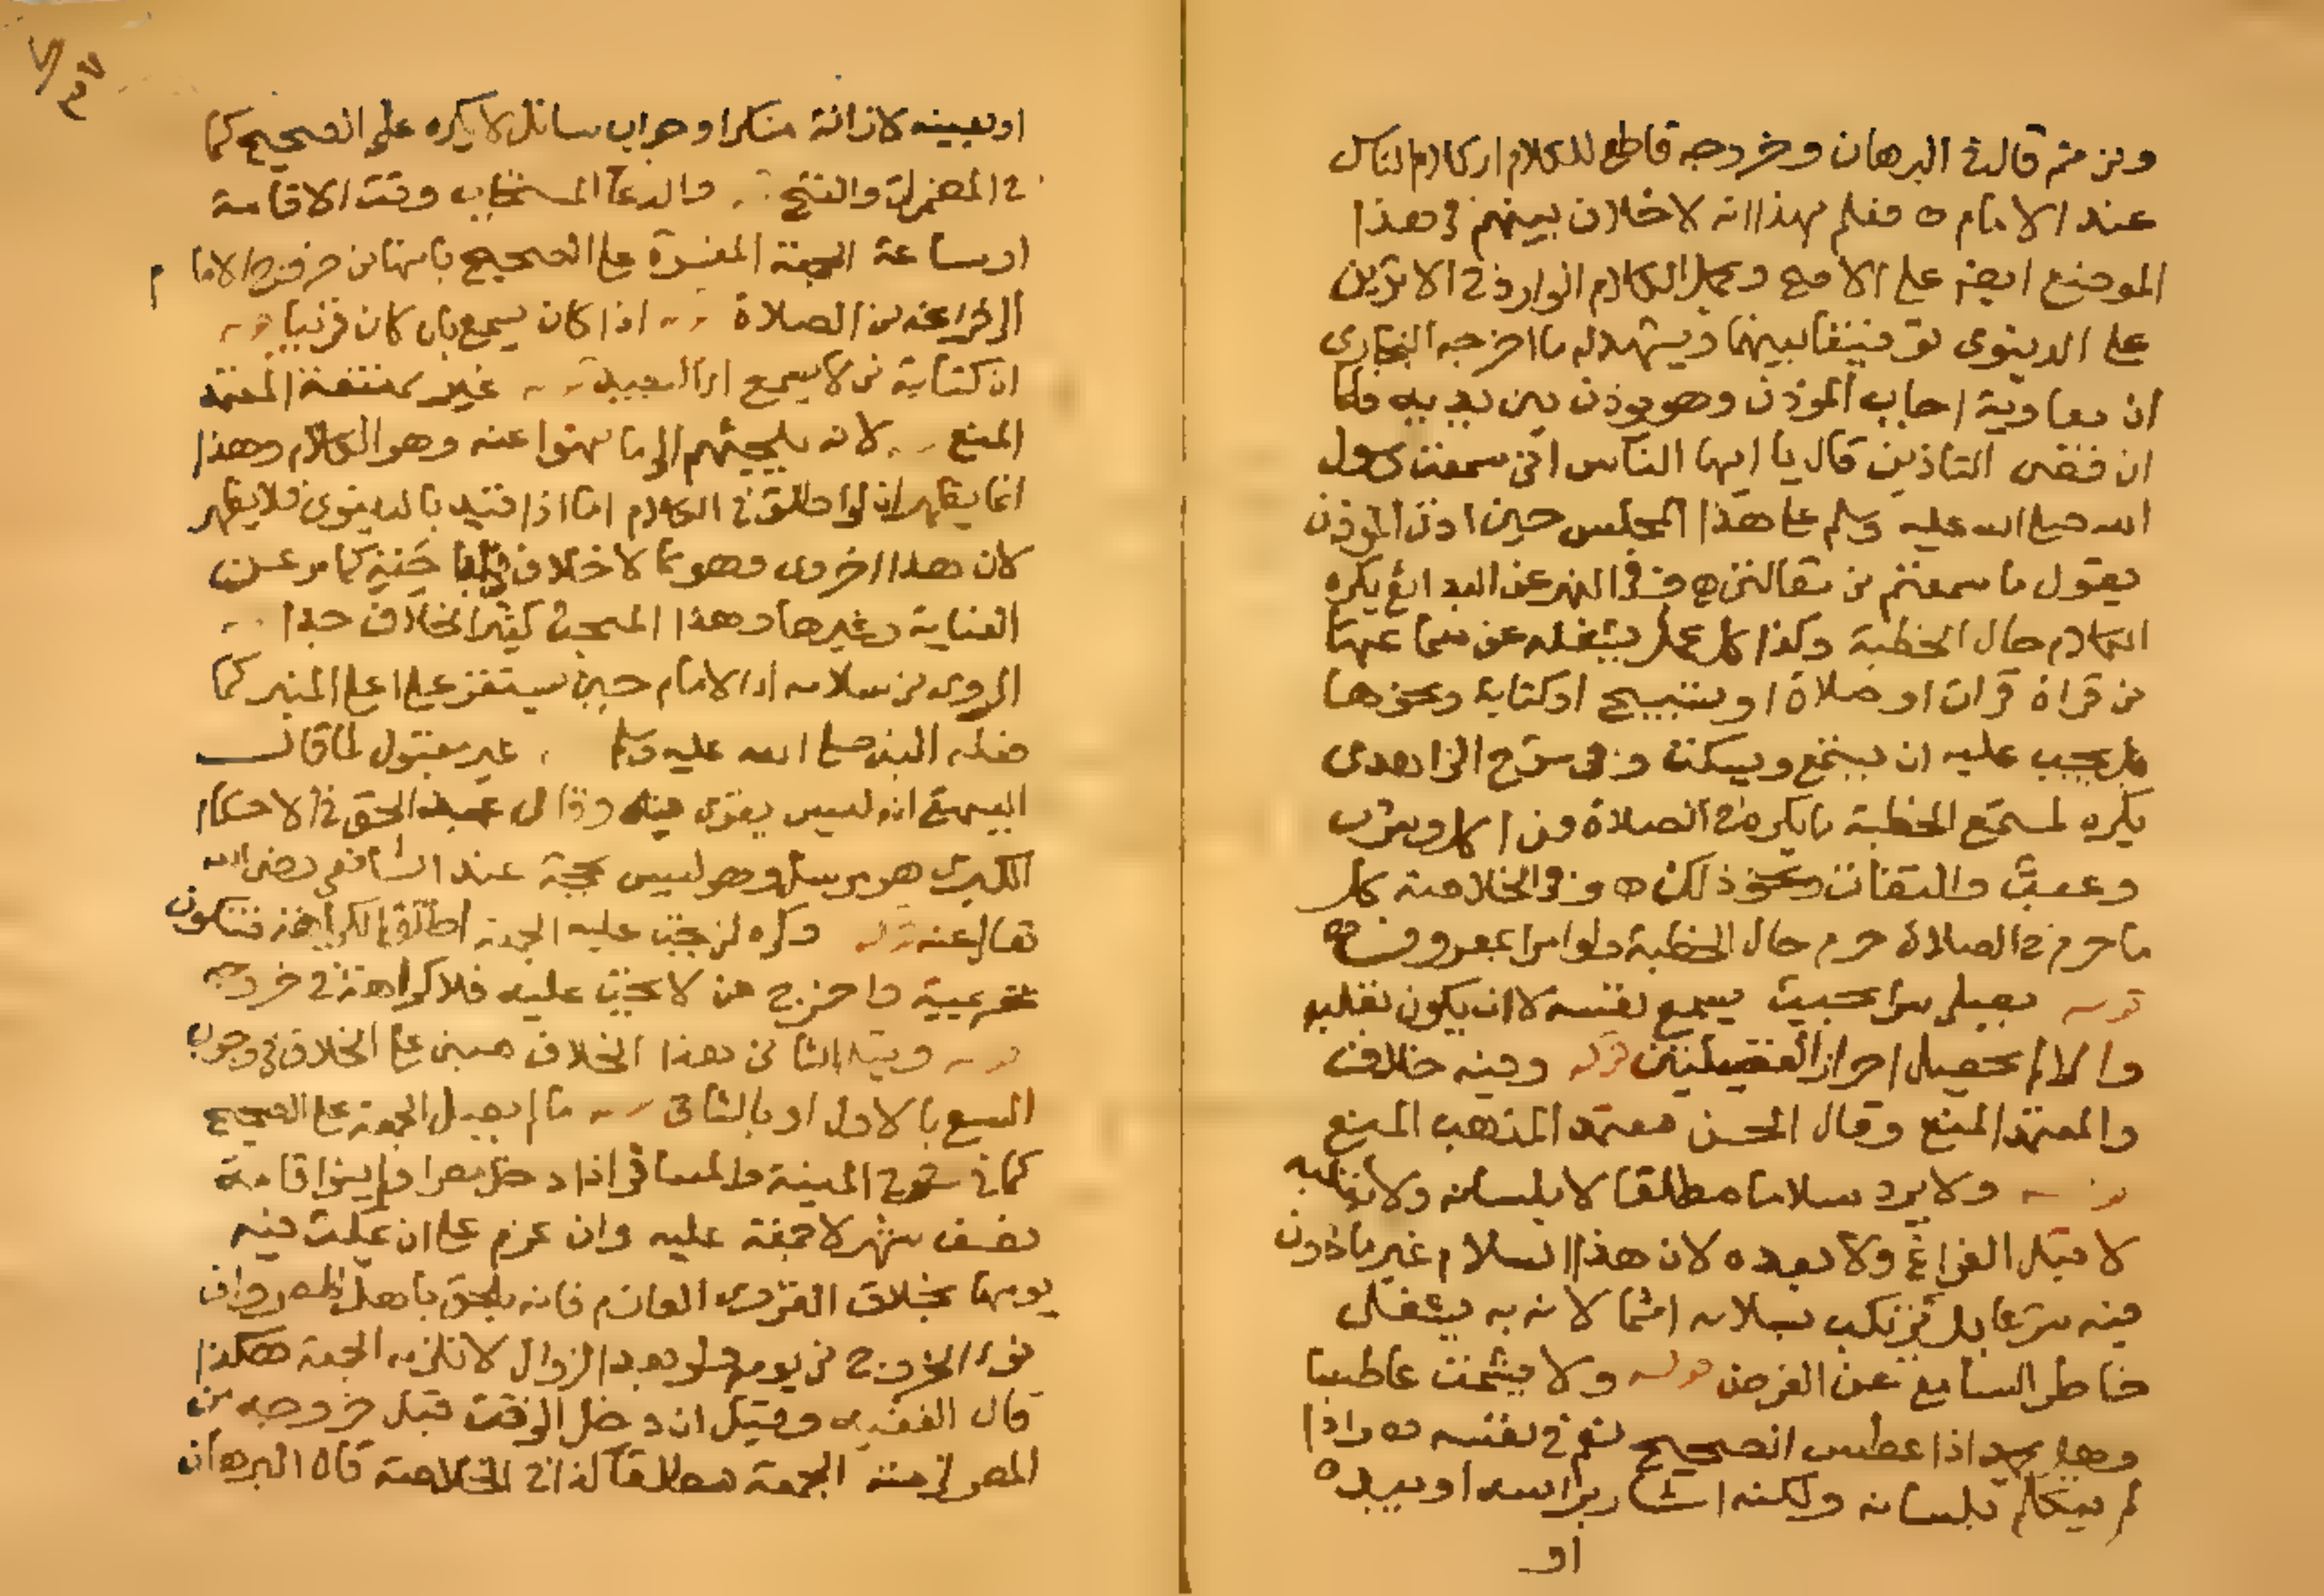 ومن ثم قال في البرهان وخروجه قاطع للكلام اي كلام الناس
عند الامام ه فعلم بهذا انه لا خلاف بينهم في هذا
الموضع ايضا على الاصح ويحمل الكلام الوارد في الاثرين
على الدينوي توفيقا بينهما ويشهد له ما اخرجه البخاري
ان معاوية اجاب الموذن وهو يوذن بين يديه فلما
ان قضى التاذين قال يا ايها الناس اني سمعت رسول
الله صلى الله عليه وسلم على هذا المجلس حين اذن الموذن
يقول ما سمعتم من مقالتي ه وفي النهر عن البدائع يكره
الكلام حال الخطبة وكذا كل عمل يشغله عن سماعها
من قراة قران او صلاة او تسبيح او كتابة ونحوها
بل يجب عليه ان يستمع ويسكت وفي شرح الزاهدي
يكره لمستمع الخطبة ما يكره في الصلاة من اكل وشرب
وعبث والتفات ونحو ذلك ه وفي الخلاصة كل
ما حرم في الصلاة حرم حال الخطبة ولو امرا بمعروف
قوله يصلي سرا بحيث يسمع نفسه لا ان يكون بقلبه
والا لم يحصل احراز الفضيلتين قوله وفيه خلاف
والمعتمد المنع وقال الحسن معتمد المذهب المنع
قوله ولا يرد سلاما مطلقا لا بلسانه ولا بقلبه
لا قبل الفراغ ولا بعده لان هذا السلام غير ماذون
فيه شرعا بل يرتكب بسلامه اثما لانه به يشغل
خاطر السامع عن الفرض قوله ولا يشمت عاطسا
وهل يحمد اذا عطس الصحيح نعم في نفسه ه واذا
لم يتكلم بلسانه ولكنه اشار براسه او بيده
او
او بعينه لازالة منكر او جواب سائل لا يكره على الصحيح كما
في المضمرات والفتح والدعا المستجاب وقت الاقامة
او ساعة الجمعة المفسرة على الصحيح بانها من خروج الامام
الى فراغه من الصلاة اذا كان يسمع بان كان قريبا
ان كتابة من لا يسمع اي البعيد غير ممتنعة المعتمد
المنع لانه يلجيهم الى ما نهوا عنه وهو الكلام وهذا
انما يظهر ان لو اطلق في الكلام اما اذا قيد بالدينوي فلا يظهر
لان هذا اخروي وهو مما لا خلاف كما مر عن
العناية وغيرها وهذا المبحث كثير الخلاف جدا
المروي من سلامه اي الامام حين يستقر على اعلى المنبر كما
فعله النبي صلى الله عليه وسلم غير مقبول لما قال
البيهقي انه ليس بقوي وقال عبد الحق في الاحكام
الكبرى هو مرسل وهو ليس بحجة عند الشافعي رضي الله
تعالى عنه قوله وكره لمن تجب عليه الجمعة اطلق الكراهة فتكون
تحريمية واخرج من لا تجب عليه فلا كراهة في خروجه
قوله وقيل بالثاني هذا الخلاف مبني على الخلاف في وجوب
السعي بالاول او بالثاني ما لم يصل الجمعة على الصحيح
كما في شرح المنية والمسافر اذا دخل مصرا ولم ينو اقامة
نصف شهر لا جمعة عليه وان عزم على ان يمكث فيه
يومها بخلاف القروي العازم فانه يلحق باهل المصر وان
نوى الخروج من يومه ولو بعد الزوال لا تلزمه الجمعة هكذا
قال الفقيه وقيل ان دخل الوقت قبل خروجه من
المصر لزمته الجمعة مطلقا كذا في الخلاصة قال البرهان